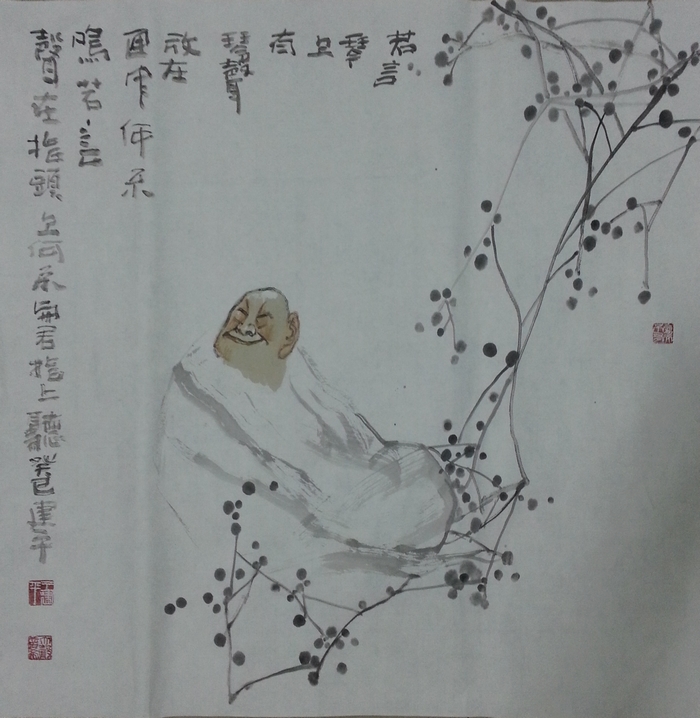 若言
琴
上
有
琴聲
放在
匣中何不
鳴若言
聲在指頭上何不君指上聽癸巳建平